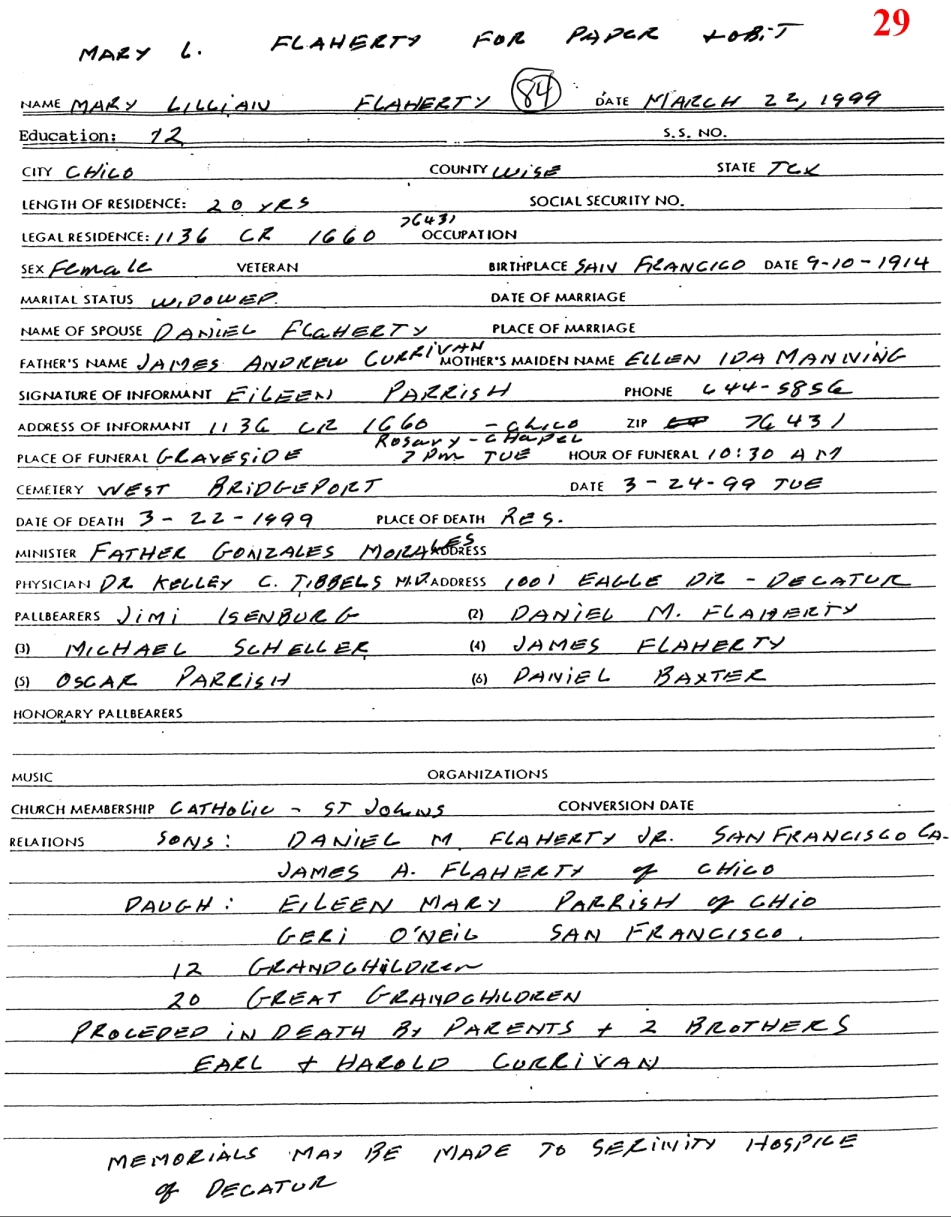 29
MARY L. FLAHERTY FOR PAPER + OBIT
NAME MARY LILLIAN FLAHERTY 84 DATE MARCH 22, 1999
Education: 12 S.S. NO.
CITY CHICO COUNTY WISE STATE TEX
LENGTH OF RESIDENCE: 20 YRS SOCIAL SECURITY NO.
LEGAL RESIDENCE: 1136 CR 1660 76431 OCCUPATION
SEX Female VETERAN BIRTHPLACE SAN FRANCICO DATE 9-10-1914
MARITAL STATUS WIDOWED DATE OF MARRIAGE
NAME OF SPOUSE DANIEL FLAHERTY PLACE OF MARRIAGE
FATHER'S NAME JAMES ANDREW CURRIVAN MOTHER'S MAIDEN NAME ELLEN IDA MANNING
SIGNATURE OF INFORMANT EILEEN PARRISH PHONE 644-5856
ADDRESS OF INFORMANT 1136 CR 1660 - CHICO ZIP 76431
Rosary - CHAPEL
PLACE OF FUNERAL GRAVESIDE 7 Pm TUE HOUR OF FUNERAL 10:30 AM
CEMETERY WEST BRIDGEPORT DATE 3-24-99 TUE
DATE OF DEATH 3-22-1999 PLACE OF DEATH RES.
MINISTER FATHER GONZALES MORALES ADDRESS
PHYSICIAN DR KELLEY C. TIBBELS M.D ADDRESS 1001 EAGLE DR - DECATUR
PALLBEARERS JIMI ISENBURG (2) DANIEL M. FLAHERTY
(3) MICHAEL SCHELLER (4) JAMES FLAHERTY
(5) OSCAR PARRISH (6) DANIEL BAXTER
HONORARY PALLBEARERS
MUSIC ORGANIZATIONS
CHURCH MEMBERSHIP CATHOLIC - ST JOHNS CONVERSION DATE
RELATIONS SONS: DANIEL M. FLAHERTY JR. SAN FRANCISCO CA.
JAMES A. FLAHERTY of CHICO
DAUGH: EILEEN MARY PARRISH of CHIO
GERI O'NEIL SAN FRANCISCO.
12 GRANDCHILDREN
20 GREAT GRANDCHILDREN
PROCEDED IN DEATH BY PARENTS + 2 BROTHERS
EARL + HAROLD CURRIVAN
MEMORIALS MAY BE MADE TO SERINITY HOSPICE
of DECATUR